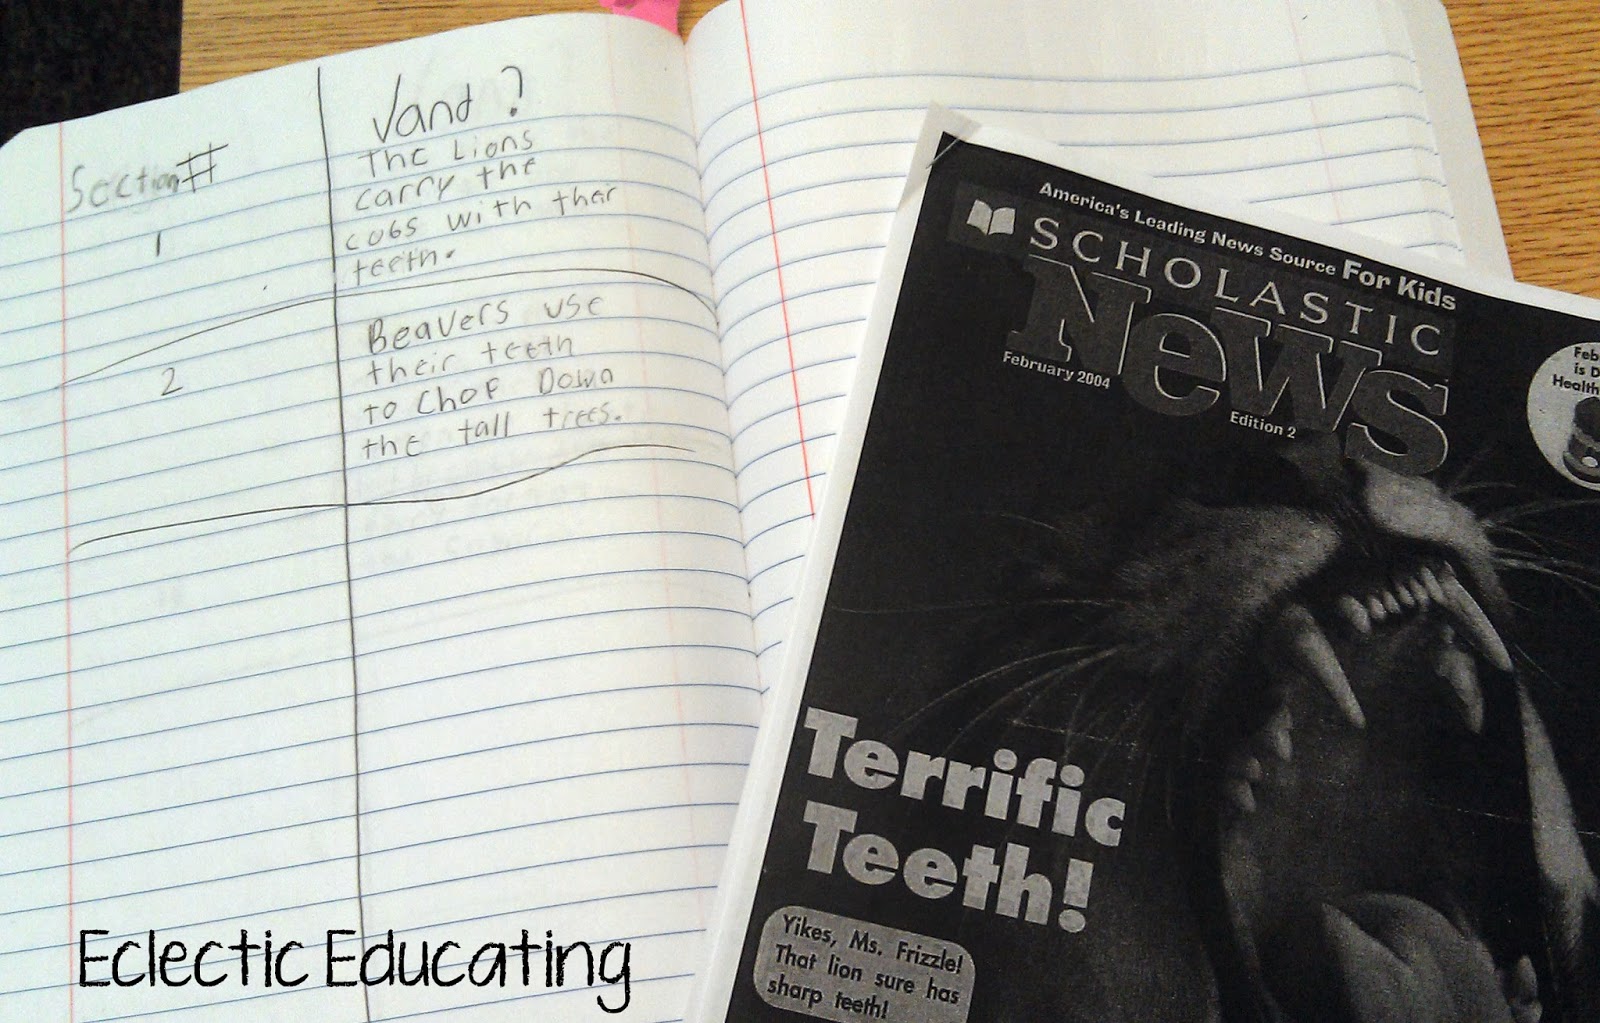 Section#
√and?
1
The Lions
carry the
cubs with ther
teeth.
2
Beavers use
their teeth
to chop Down
the tall trees.
America's Leading News Source For Kids
SCHOLASTIC
News
February 2004
Edition 2
Feb
is D
Health
Terrific
Teeth!
Yikes, Ms. Frizzle!
That lion sure has
sharp teeth!
Eclectic Educating